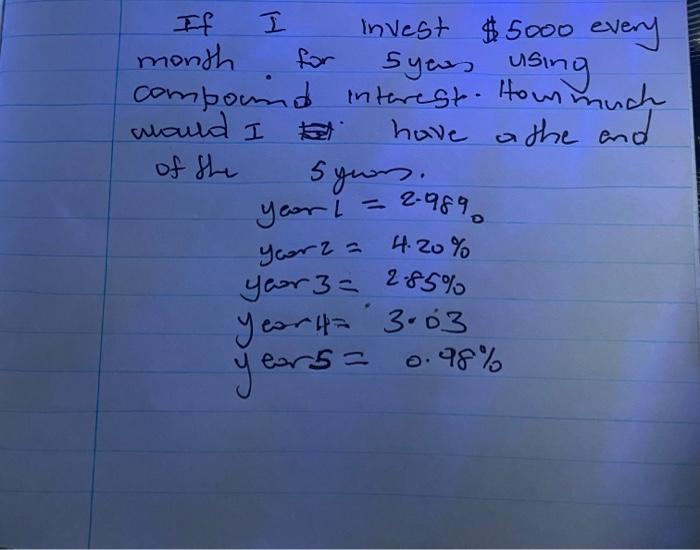 If I invest $5000 every
month for 5 years using
compound interest. How much
would I have a the end
of the 5 years.
year 1 = 2.98%
year 2 = 4.20%
year 3 = 2.85%
year 4 = 3.03
year 5 = 0.98%